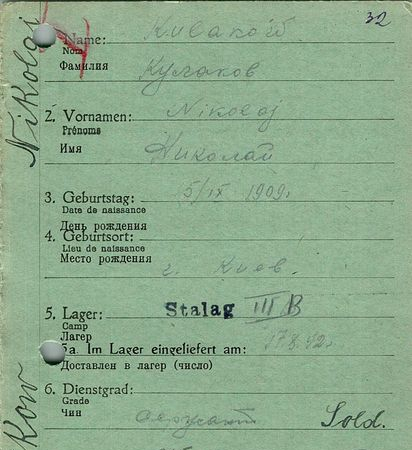 32
Name:
Nom
Фамилия
Кулаков
2. Vornamen: Nikolaj
Prénoms
Имя
Николай
3. Geburtstag: 5/IX 1909г
Date de naissance
День рождения
4. Geburtsort:
Lieu de naissance
Место рождения
г. Киев.
5. Lager: Stalag III B
Camp
Лагерь
5a. Im Lager eingeliefert am: 17.8.42г
Доставлен в лагерь (число)
6. Dienstgrad:
Grade
Чин
Sold.
Nikolai
Kow